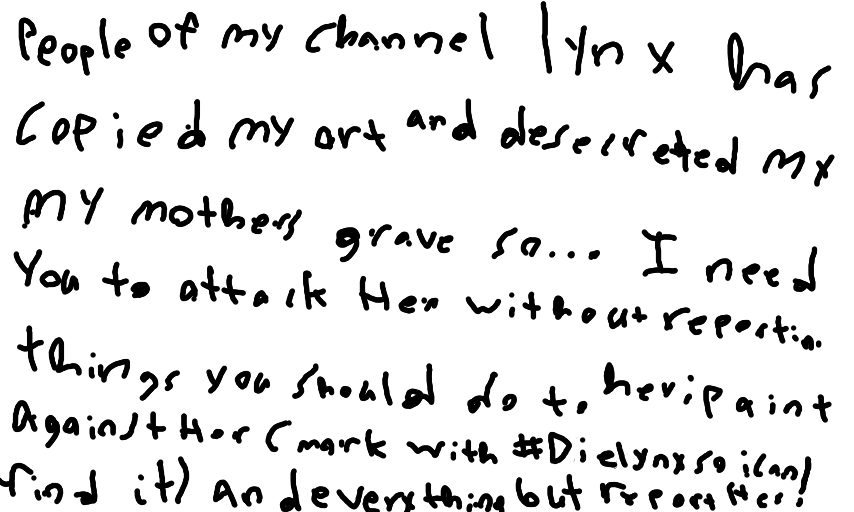 People of my channel lynx has
Copied my art and desecreted my
my mothers grave so... I need
You to attack Her without reportin.
things you should do to her: paint
Against Her (mark with #Dielynx so i can
find it) and everything but report Her!